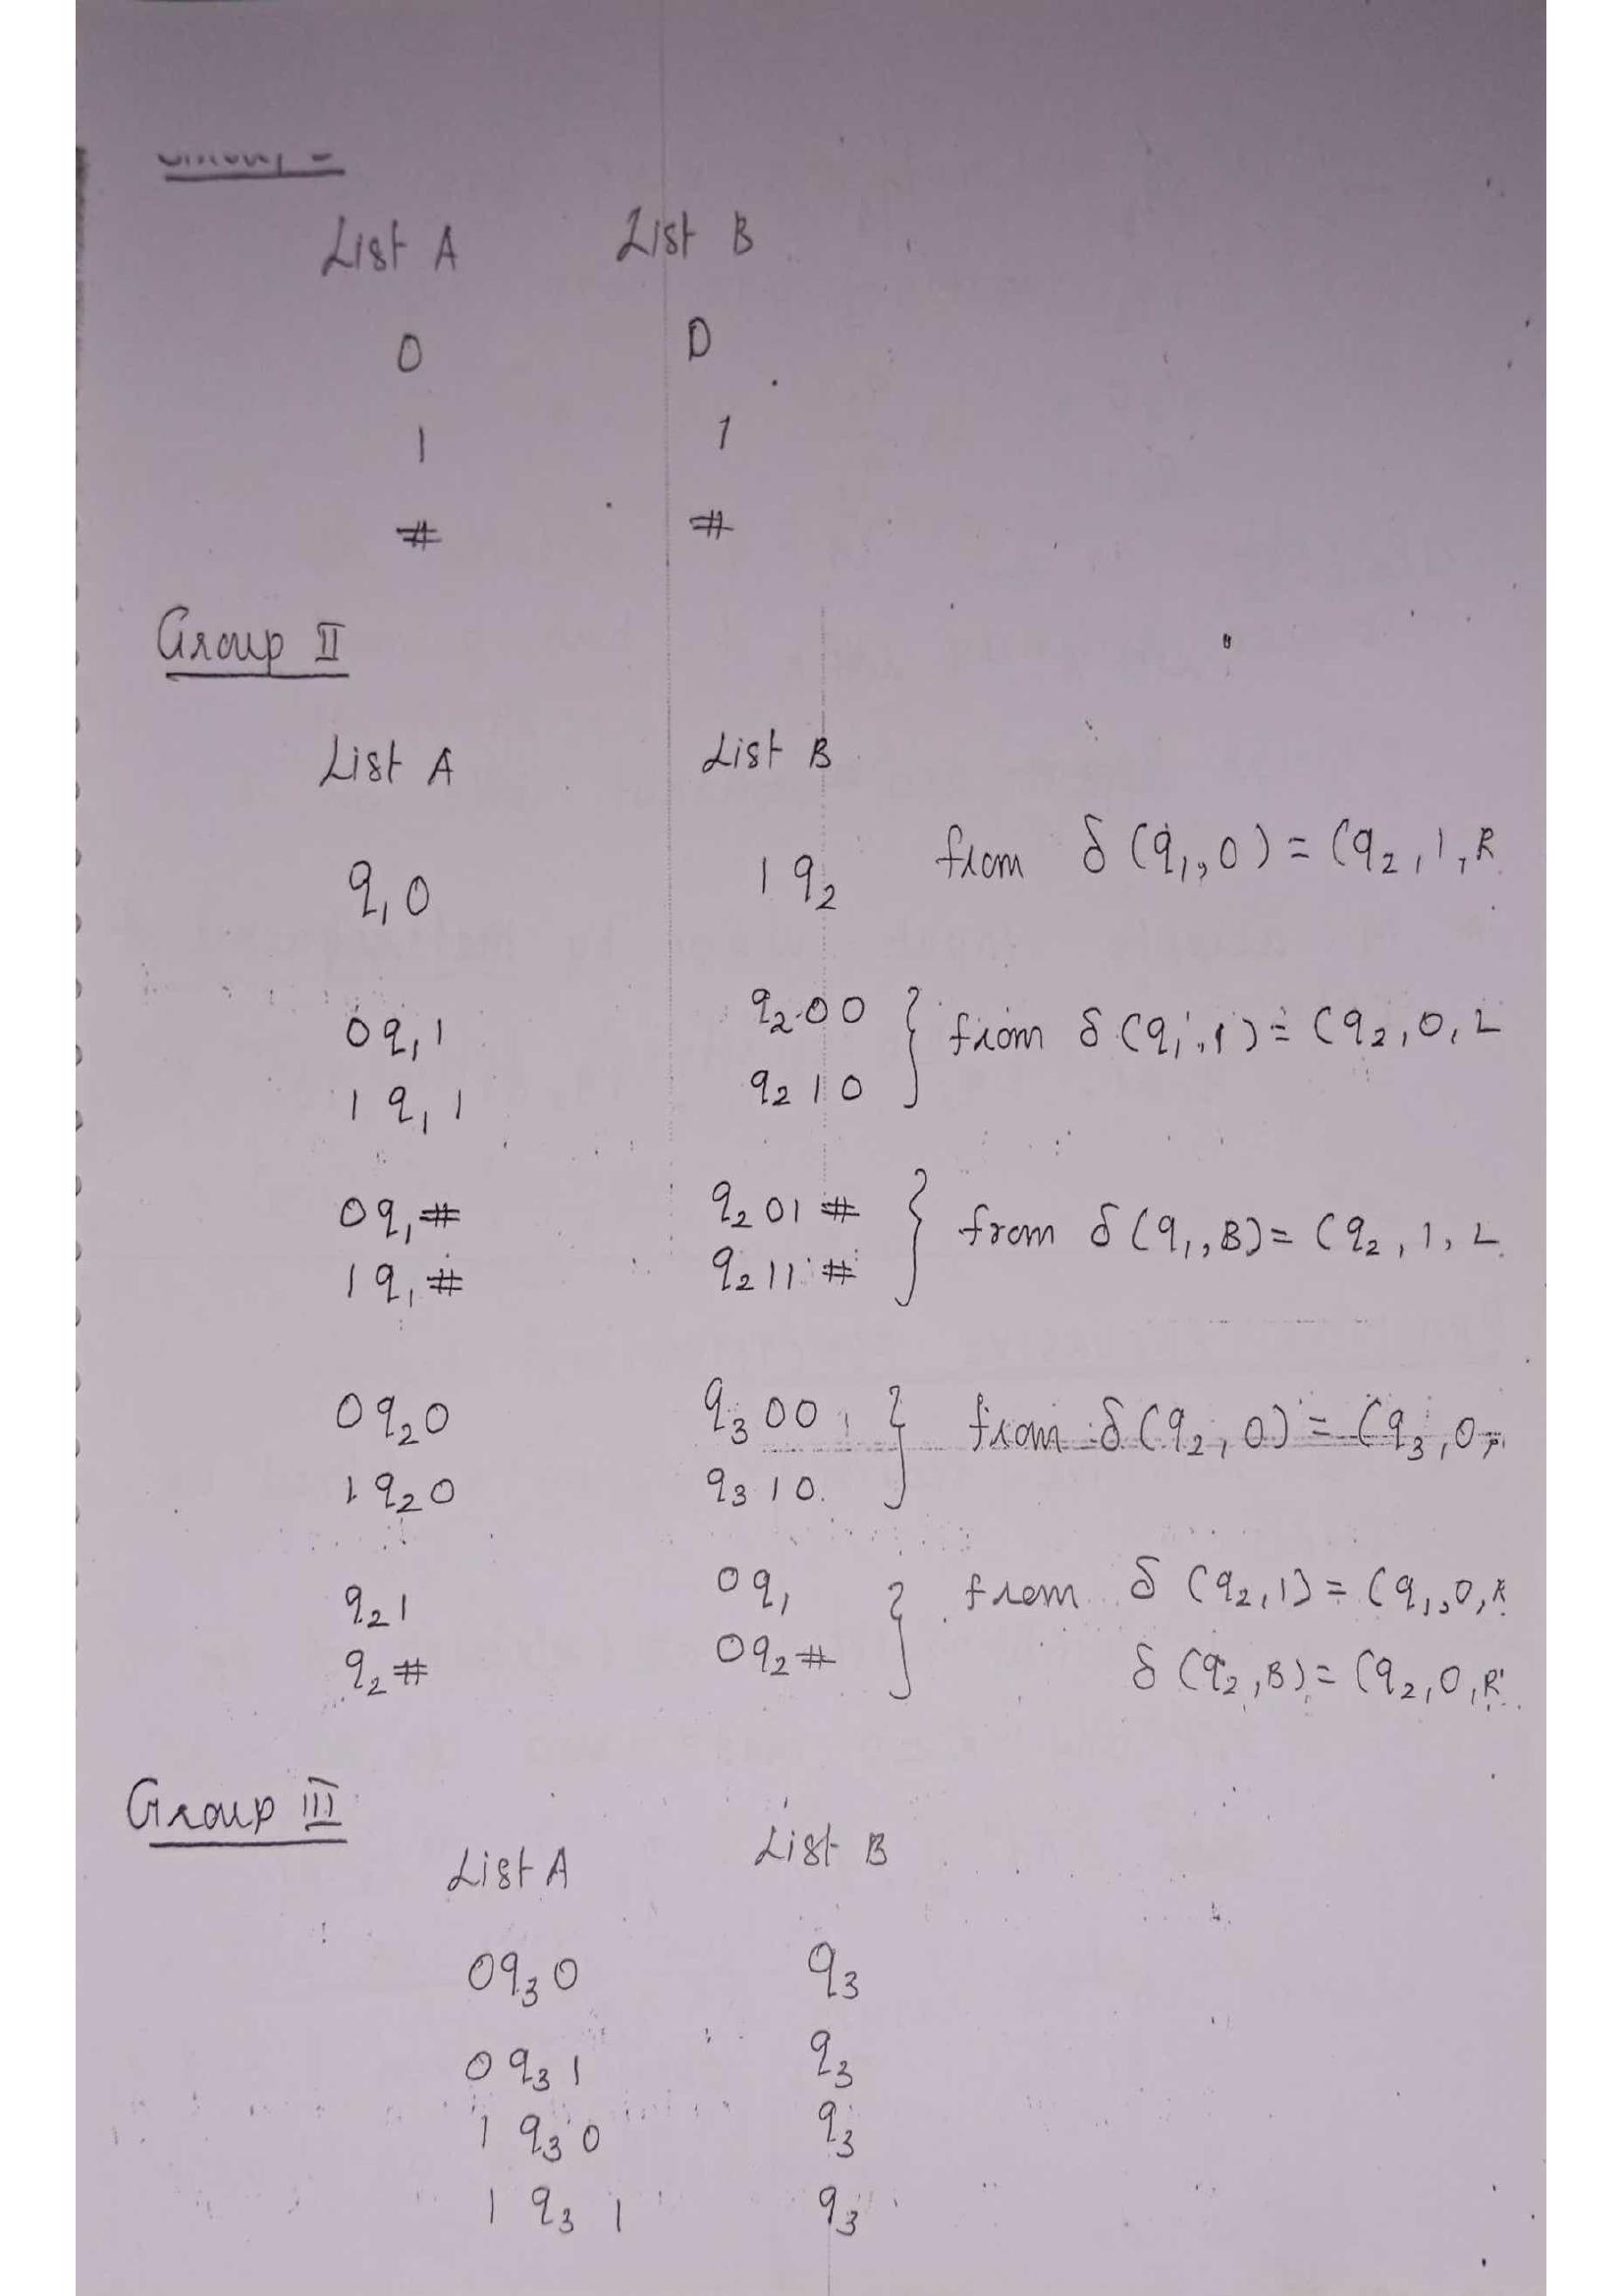 List A List B
0 0
1 1
# #
Group II
List A List B
q₁0 1q₂ from δ(q₁,0)=(q₂,1,R
0q₁1 q₂00 } from δ(q₁,1)=(q₂,0,L
1q₁1 q₂10
0q₁# q₂01# } from δ(q₁,B)=(q₂,1,L
1q₁# q₂11#
0q₂0 q₃00 } from δ(q₂,0)=(q₃,0,
1q₂0 q₃10
q₂1 0q₁ } from δ(q₂,1)=(q₁,0,R
q₂# 0q₂# δ(q₂,B)=(q₂,0,R
Group III
List A List B
0q₃0 q₃
0q₃1 q₃
1q₃0 q₃
1q₃1 q₃